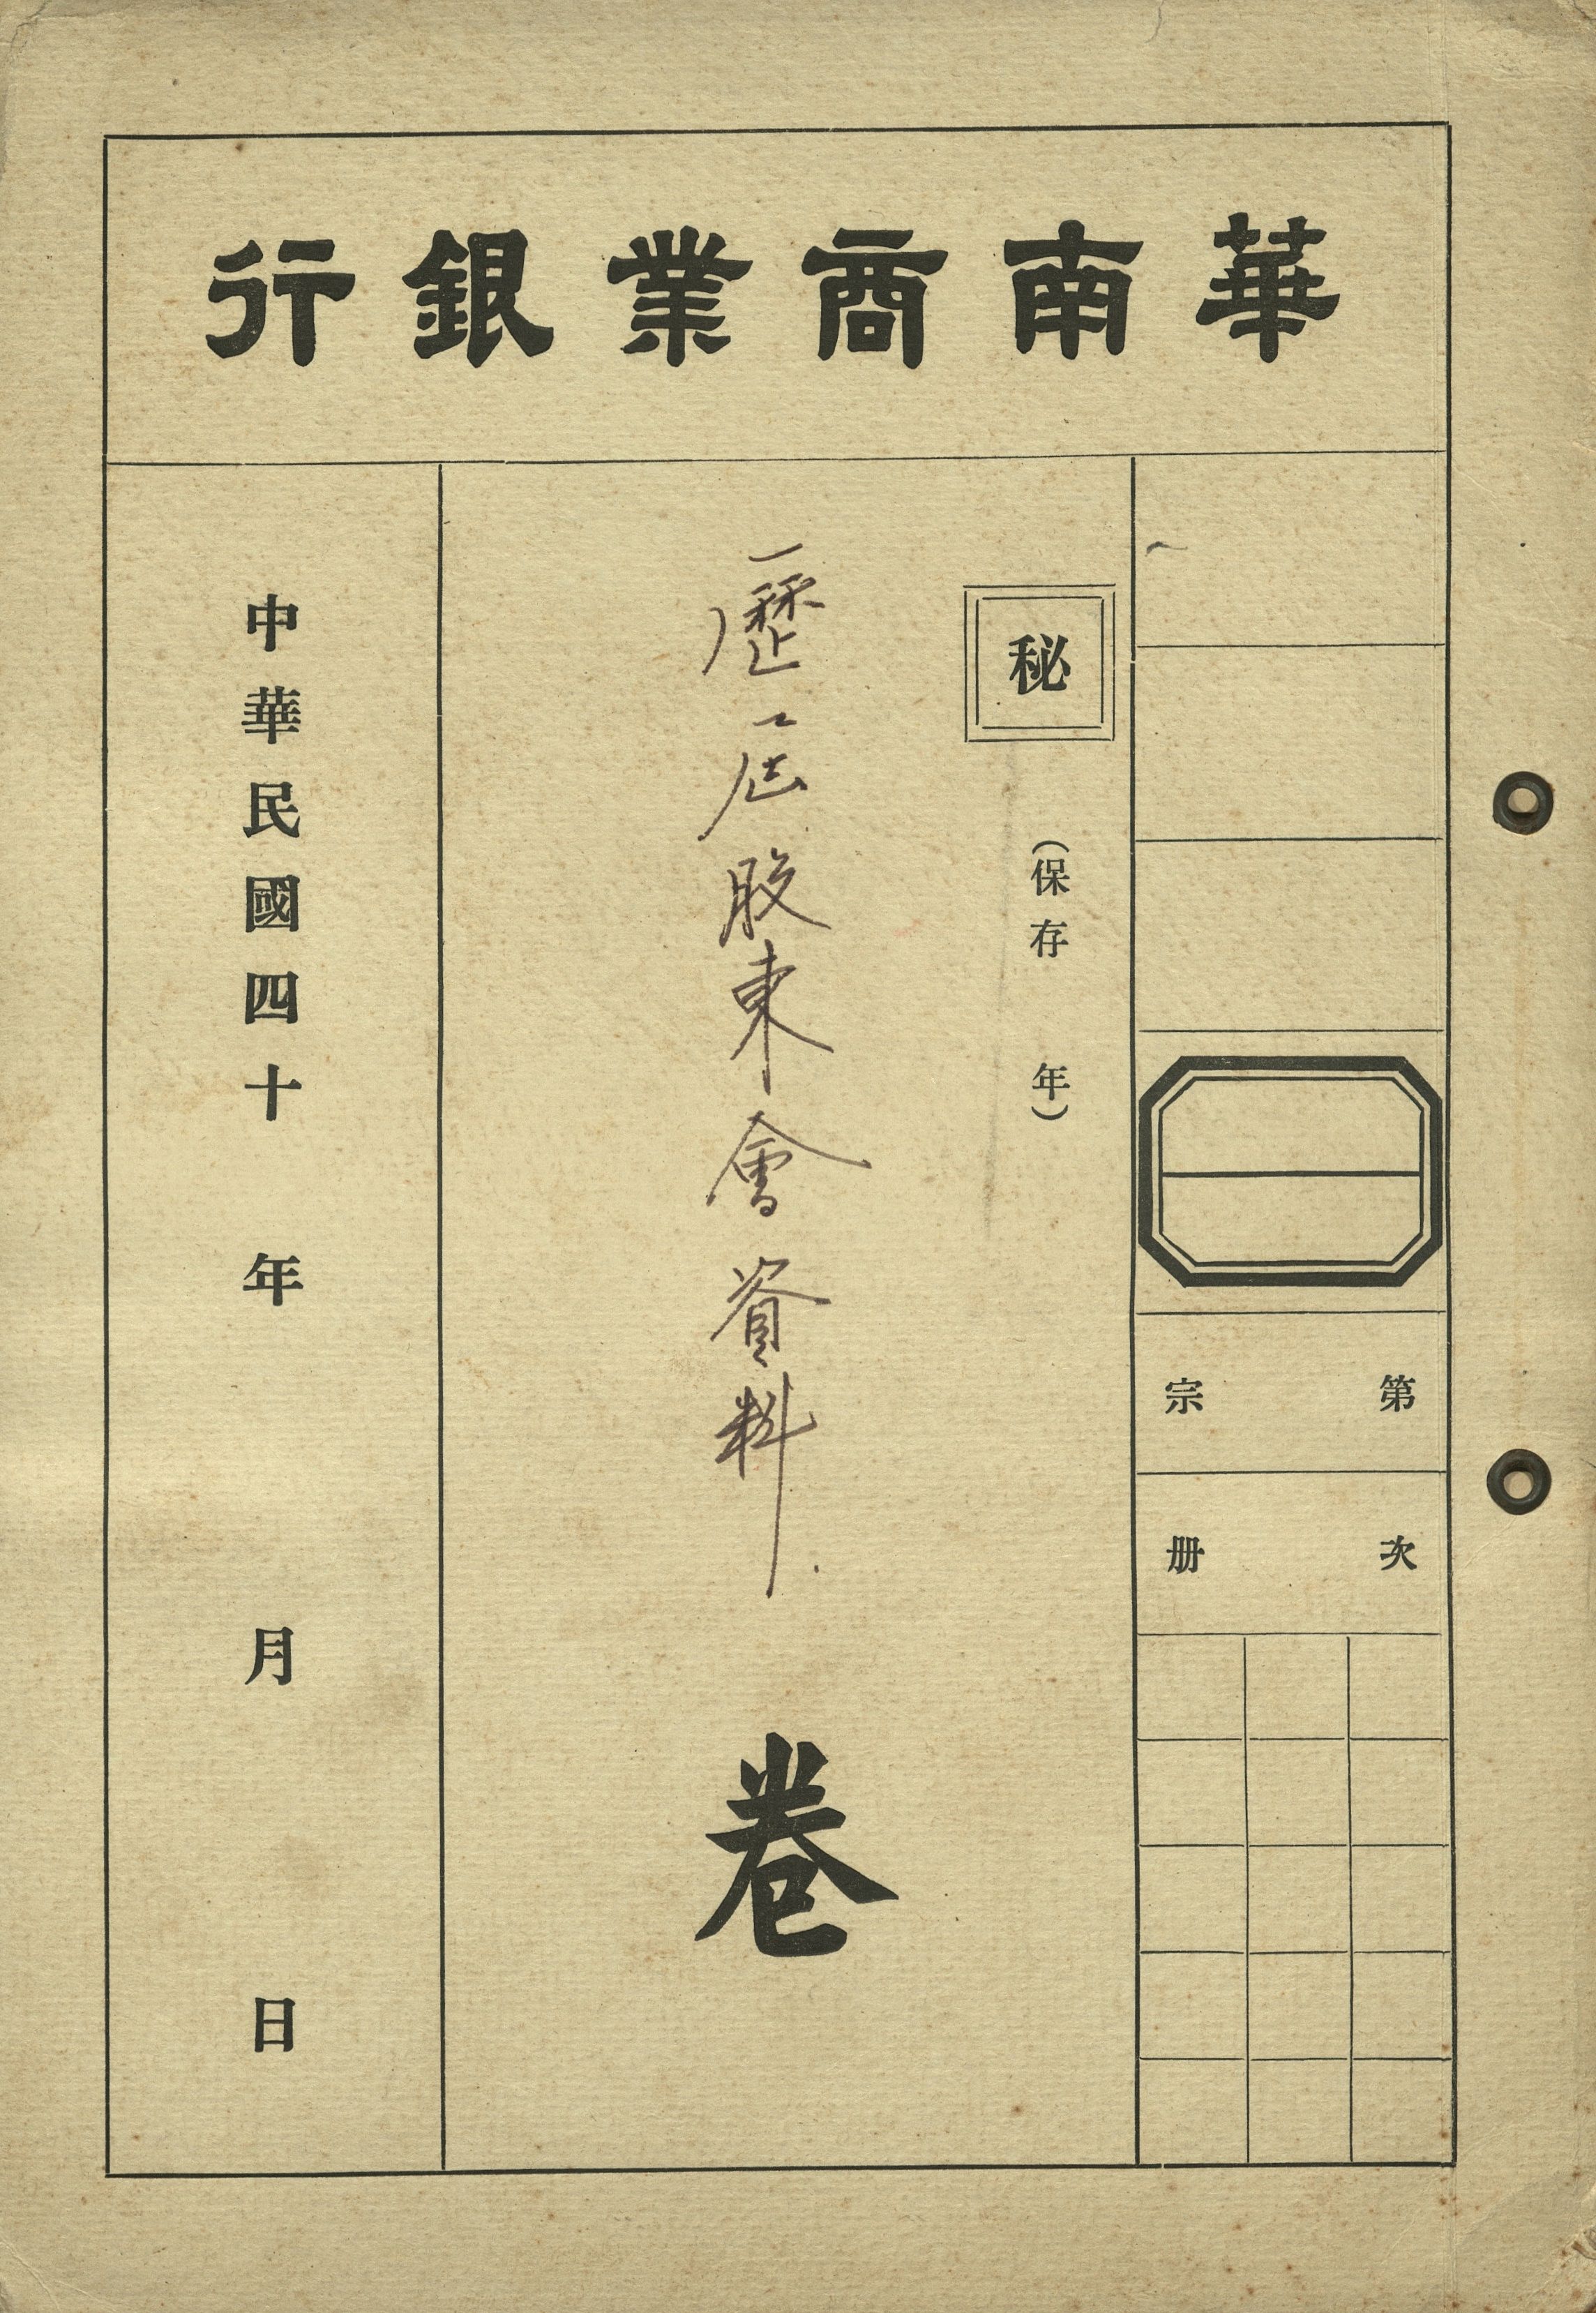 華南商業銀行
第 宗
次 册
秘
（保存 年）
歷屆股東會資料
卷
中華民國四十 年 月 日